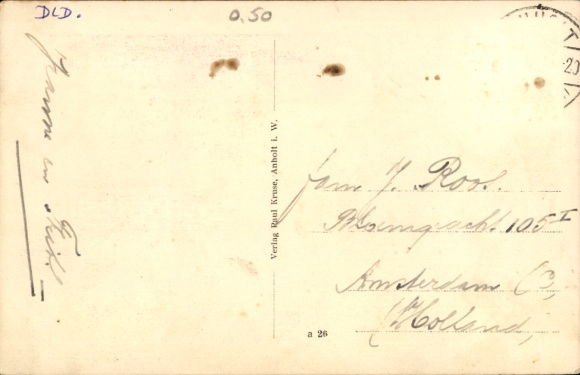 DLD.
0.50
Hanne en Frits!
Verlag Paul Kruse, Anholt i. W.
fam J. Roos.
Bloemgracht 105 I
Amsterdam (C,
(Holland,
a 26